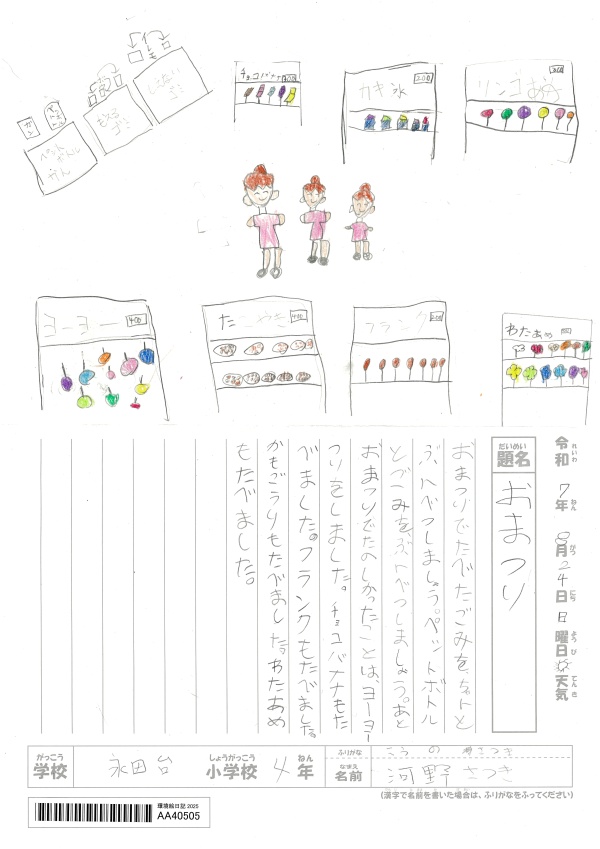 カン
ペットボトル
ペットボトル
かん
もえる
ゴミ
チョコバナナ
300
カキ氷
200
リンゴあめ
ヨーヨー
400
たこやき
400
フランク
わたあめ
令和7年8月24日日曜日天気
れいわ ねん がつ にち ようび てんき
だいめい
題名
おまつり
おまつりでたべたごみを、ちゃんと
ぶんべつしましょう。ペットボトル
とごみを、ぶんべつしましょう。あと
おまつりでたのしかったことは、ヨーヨー
つりをしました。チョコバナナもた
べました。フランクもたべました。
かきごうりもたべました。わたあめ
もたべました。
がっこう
学校
永田台
しょうがっこう
小学校
4
ねん
年
ふりがな
こうの さつき
なまえ
名前
河野 さつき
(漢字で名前を書いた場合は、ふりがなをふってください)
環境絵日記 2025
AA40505